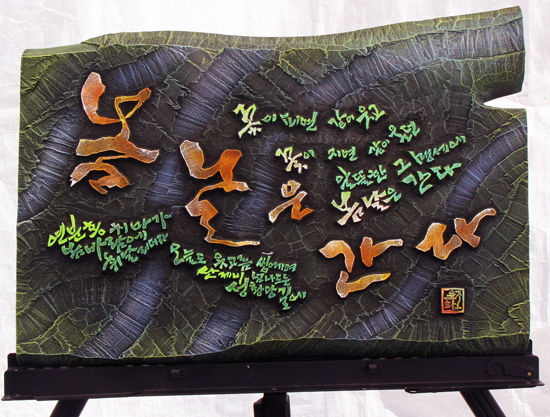 봄날은 간다
연분홍 치마가
봄바람에
휘날리더라
오늘도 옷고름 씹어며
산제비 넘나드는
성황당 길에
꽃이 피면 같이 웃고
꽃이 지면 같이 울던
알뜰한 그 맹세에
봄날은 간다